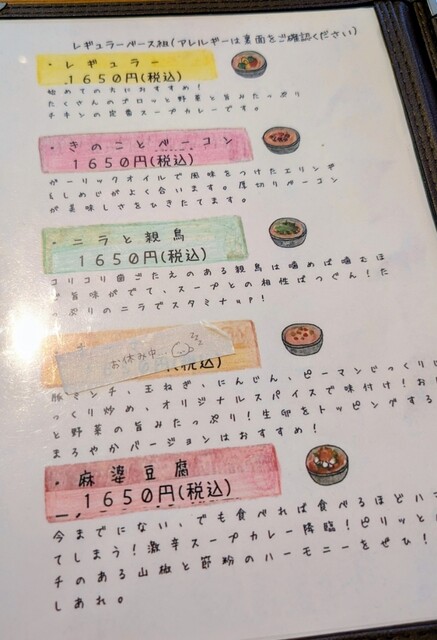 レギュラーベース組(アレルギーは裏面をご確認ください)
・レギュラー
1650円(税込)
始めての方におすすめ!
たくさんのゴロッと野菜と旨みたっぷり
チキンの定番スープカレーです。
・きのことベーコン
1650円(税込)
ガーリックオイルで風味をつけたエリンギ
&しめじがよく合います。厚切りベーコン
が美味しさをひきたてます。
・ニラと親鳥
1650円(税込)
コリコリ歯ごたえのある親鳥は噛めば噛むほ
ど旨味がでて、スープとの相性ばつぐん!た
っぷりのニラでスタミナup!
お休み中...
(税込)
豚ミンチ、玉ねぎ、にんじん、ピーマンじっくりじ
っくり炒め、オリジナルスパイスで味付け!お
と野菜の旨みたっぷり!生卵をトッピングする
まろやかバージョンはおすすめ!
・麻婆豆腐
1650円(税込)
今までにない、でも食べれば食べるほどハ
てしまう!激辛スープカレー降臨!ピリッと
チのある山椒と節粉のハーモニーをぜひ!
しあれ。